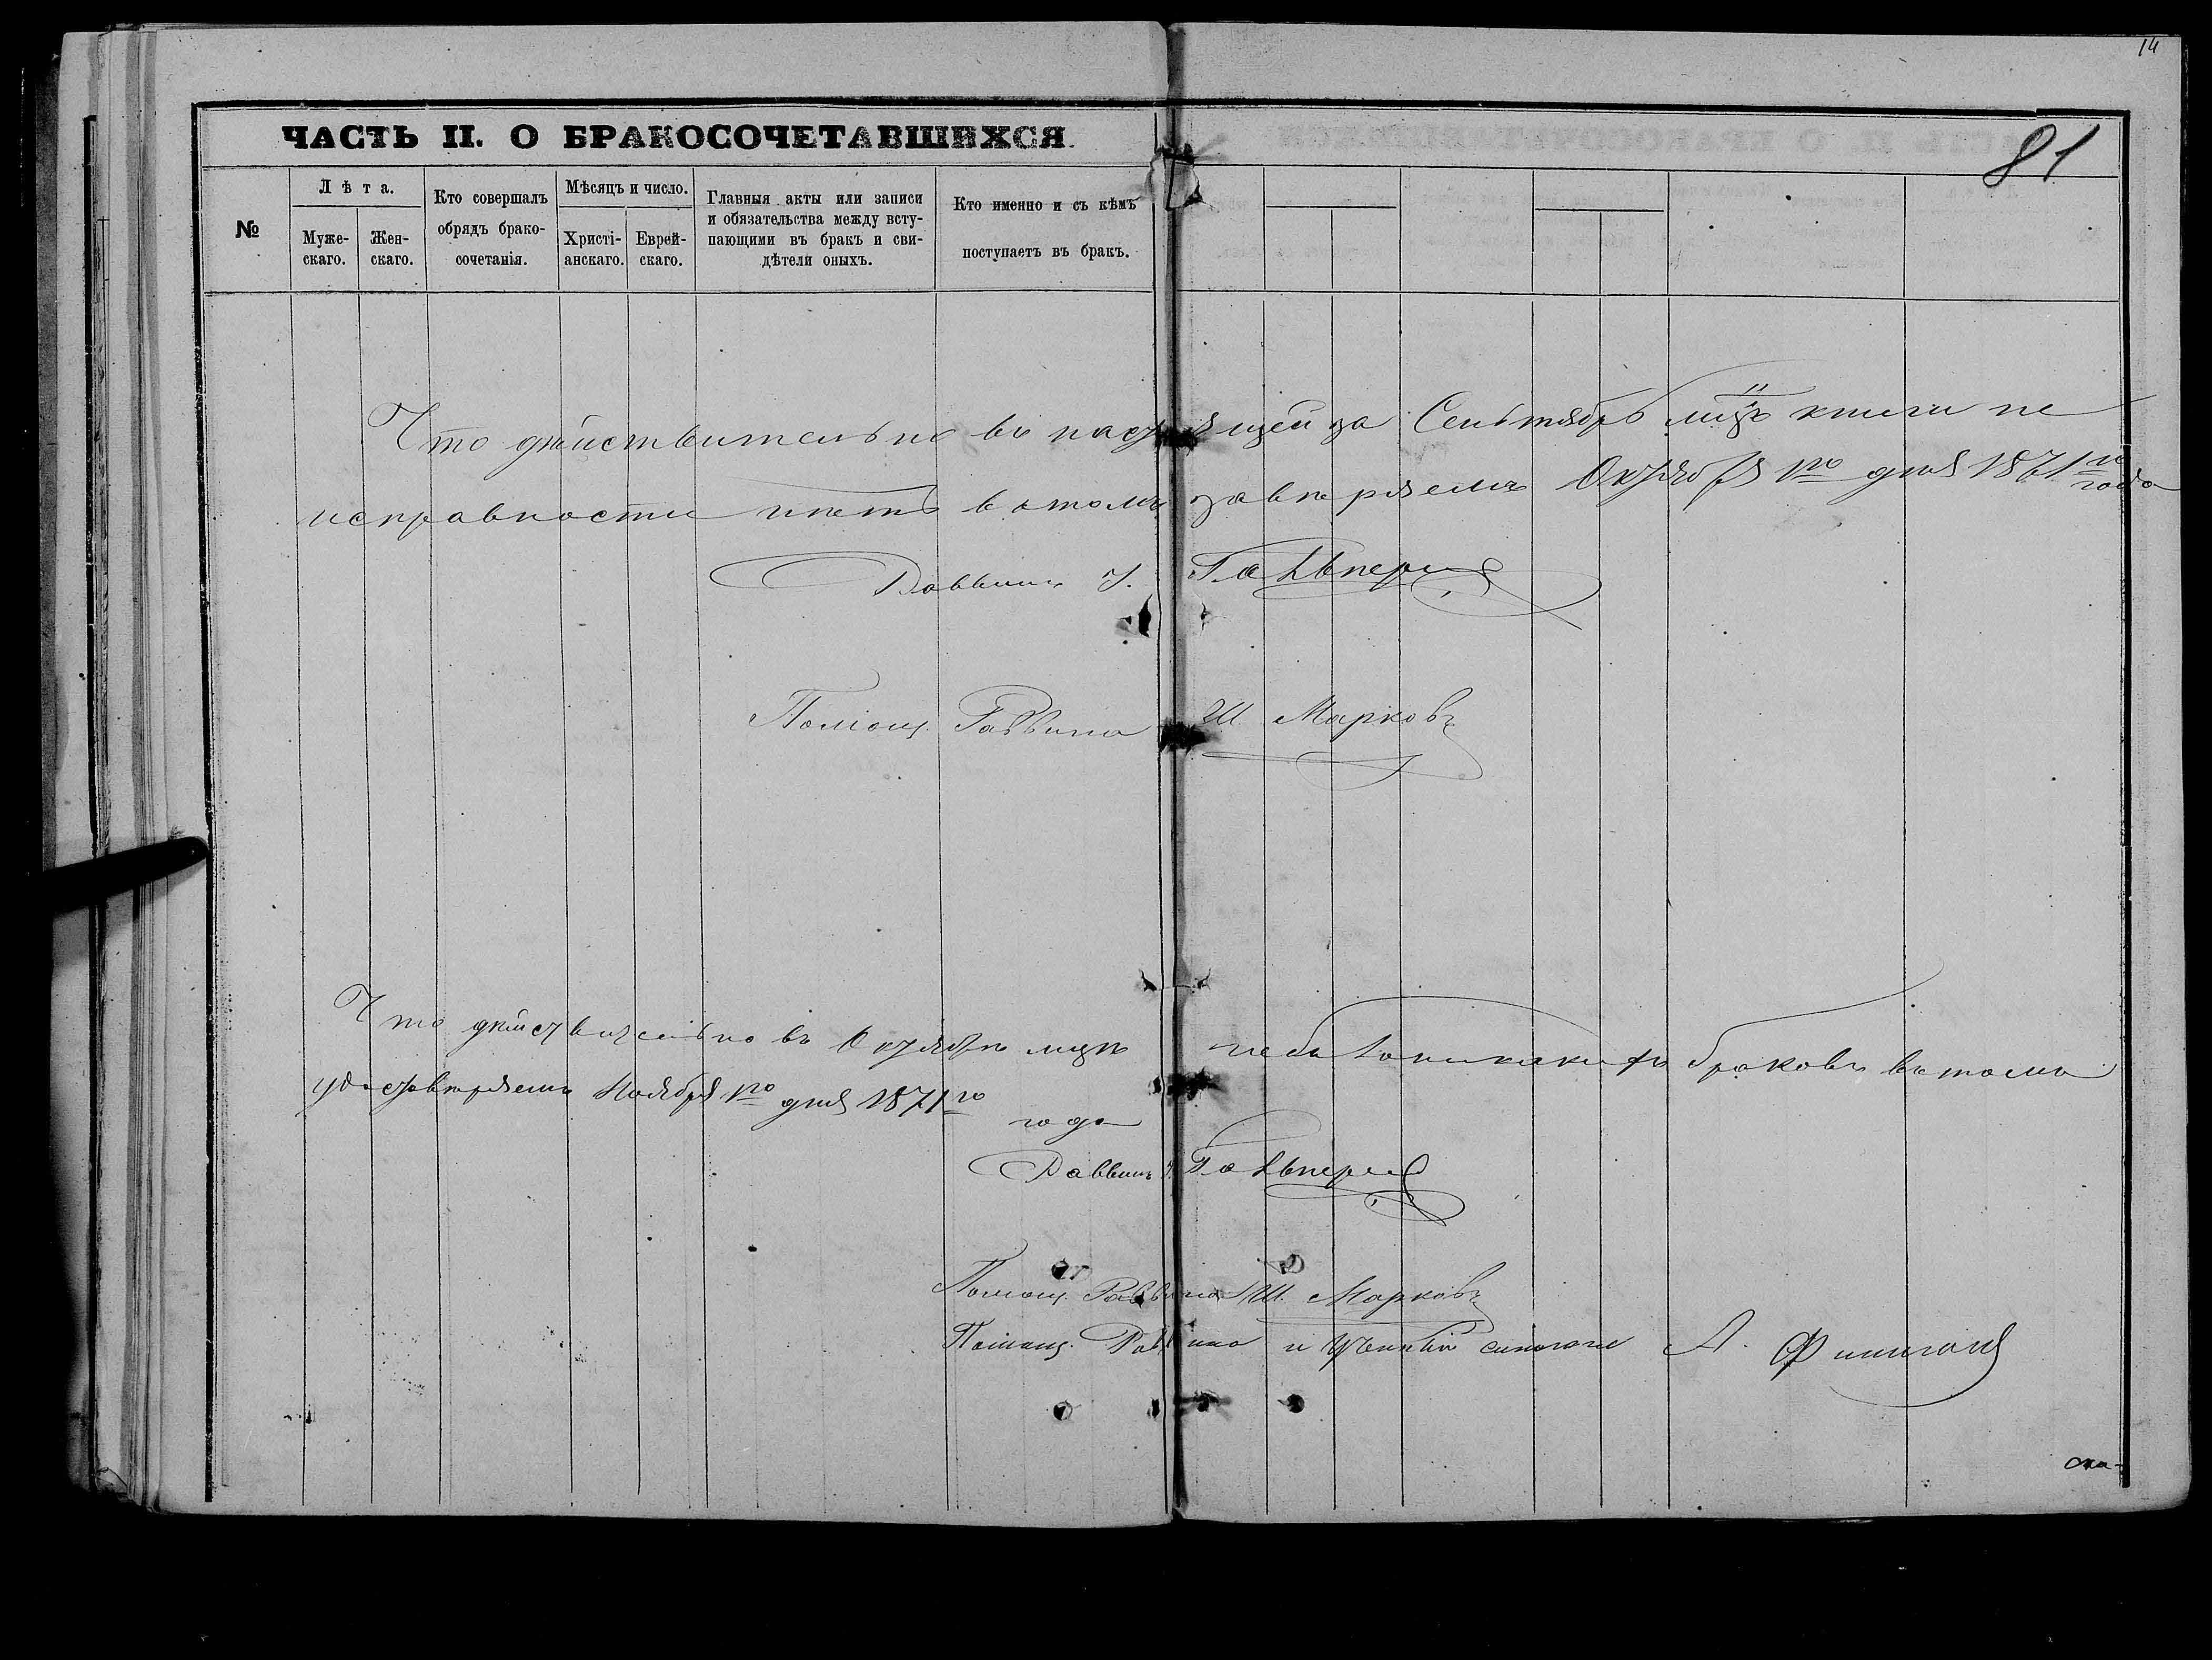 14
81
ЧАСТЬ II. О БРАКОСОЧЕТАВШИХСЯ.
№
Лѣта.
Муже-
скаго.
Жен-
скаго.
Кто совершалъ
обрядъ брако-
сочетанія.
Мѣсяцъ и число.
Христі-
анскаго.
Еврей-
скаго.
Главныя акты или записи
и обязательства между всту-
пающими въ бракъ и сви-
дѣтели оныхъ.
Кто именно и съ кѣмъ
поступаетъ въ бракъ.
Что дѣйствительно въ настоящей за Сентябрь мцъ книги не
исправности нѣтъ в томъ завѣряемъ Октября 1го дня 1871го года
Раввинъ І. Гальперин
Помощ. Раввина Ш. Марковъ
Что дѣйствительно въ Октябрѣ мцѣ небыло никакихъ браковъ в томъ
удостовѣряемъ Ноября 1го дня 1871го
года
Раввинъ І. Гальперин
Помощ. Раввина Ш. Марковъ
Помощ. Раввина и Ученый синагоги А.